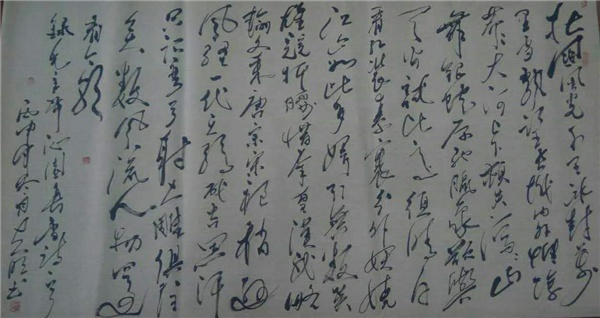 北国風光千里冰封萬
里雪飘望长城内外惟馀
莽莽大河上下顿失滔滔山
舞银蛇原驰腊象欲與
天公试比高须晴日
看红装素裹分外妖娆
江山如此多娇引无数英
雄竞折腰惜秦皇汉武略
输文采唐宗宋祖稍逊
风骚一代天骄成吉思汗
只识弯弓射大雕俱往
矣数风流人物还
看今朝
录毛主席沁园春雪诗一首
丙申年 书